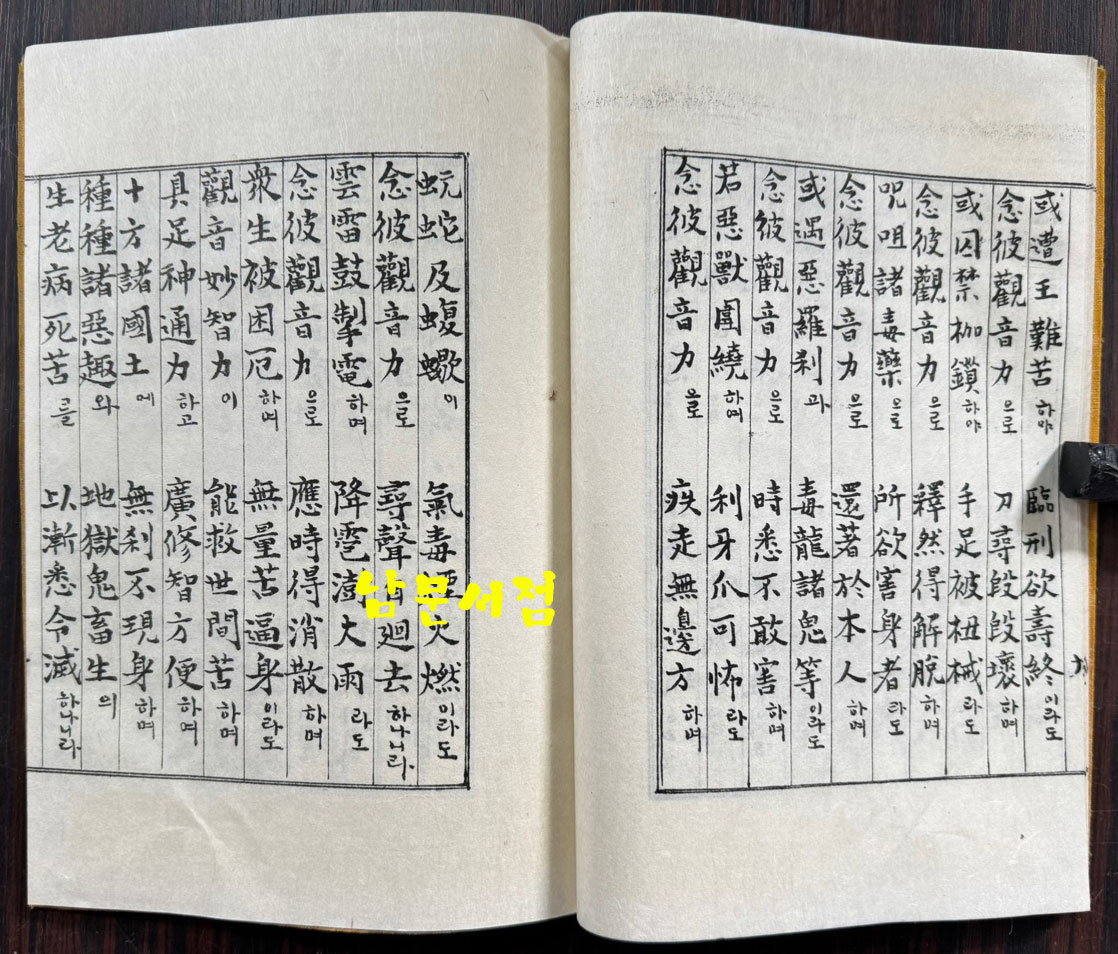 或遭王難苦하야 臨刑欲壽終이라도
念彼觀音力으로 刀尋段段壞하며
或囚禁枷鎖하야 手足被杻械라도
念彼觀音力으로 釋然得解脫하며
呪咀諸毒藥으로 所欲害身者라도
念彼觀音力으로 還著於本人하며
或遇惡羅刹과 毒龍諸鬼等이라도
念彼觀音力으로 時悉不敢害하며
若惡獸圍繞하며 利牙爪可怖라도
念彼觀音力으로 疾走無邊方하며
蚖蛇及蝮蠍이 氣毒煙火燃이라도
念彼觀音力으로 尋聲自廻去하나니라
雲雷鼓掣電하며 降雹澍大雨라도
念彼觀音力으로 應時得消散하며
衆生被困厄하며 無量苦逼身이라도
觀音妙智力이 能救世間苦하며
具足神通力하고 廣修智方便하며
十方諸國土에 無刹不現身하며
種種諸惡趣와 地獄鬼畜生의
生老病死苦를 以漸悉令滅하나니라
남문서점